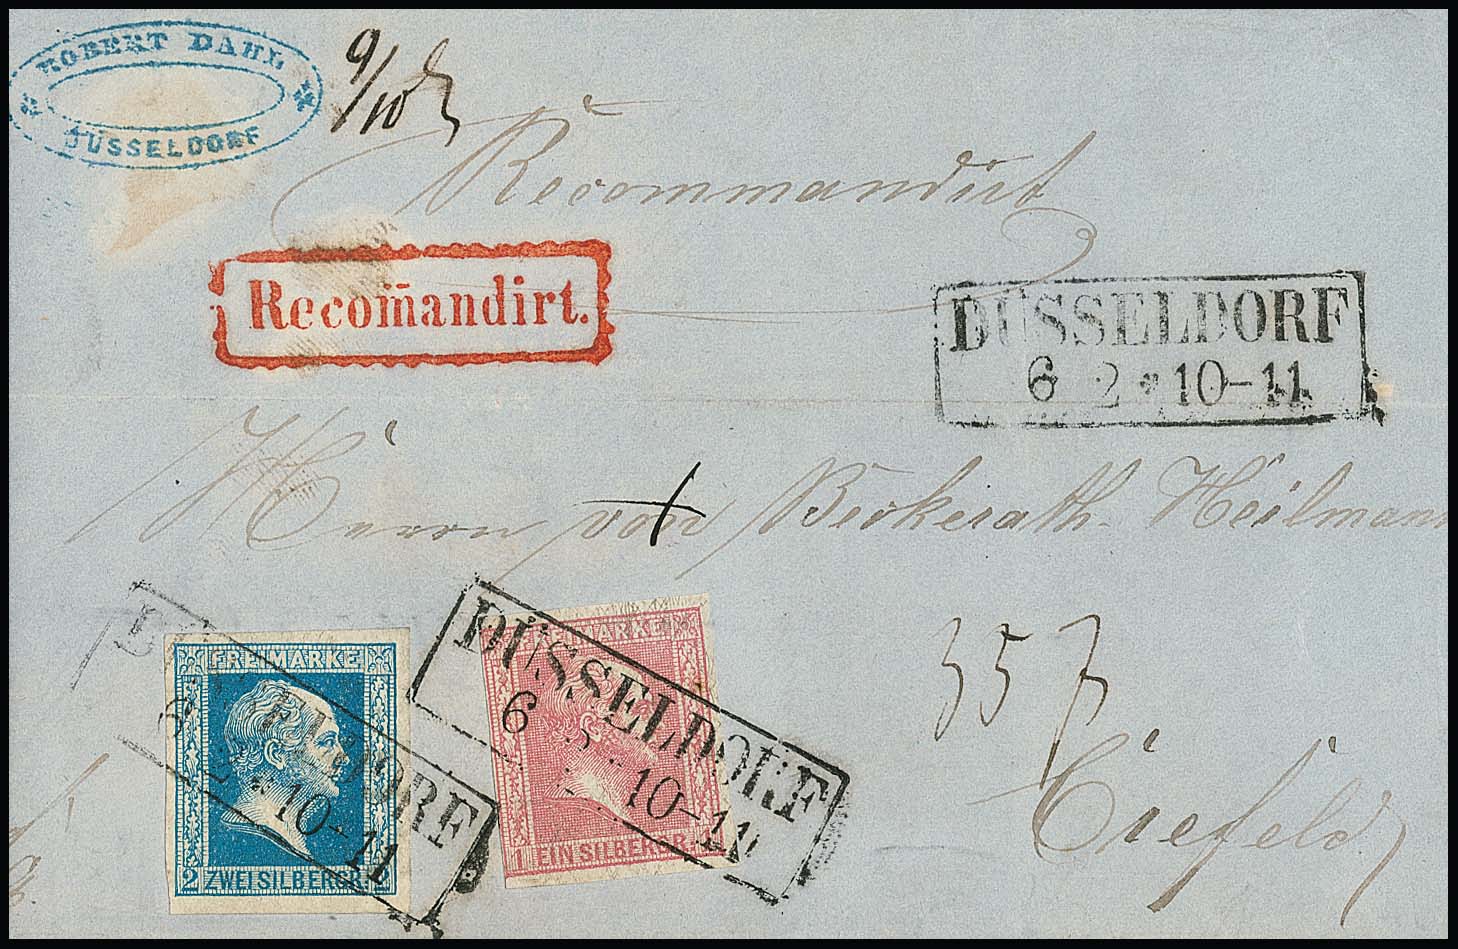 ROBERT DAHL
DÜSSELDORF
9/10
Recommandirt
Recom̄andirt.
DÜSSELDORF
6 2 * 10-11
Herrn von Beckerath-Heilmann
357
Crefeld
DÜSSELDORF
6 2 * 10-11
FREIMARKE
2 ZWEI SILBERGR. 2
DÜSSELDORF
6 10-11
FREIMARKE
1 EIN SILBERGR. 1